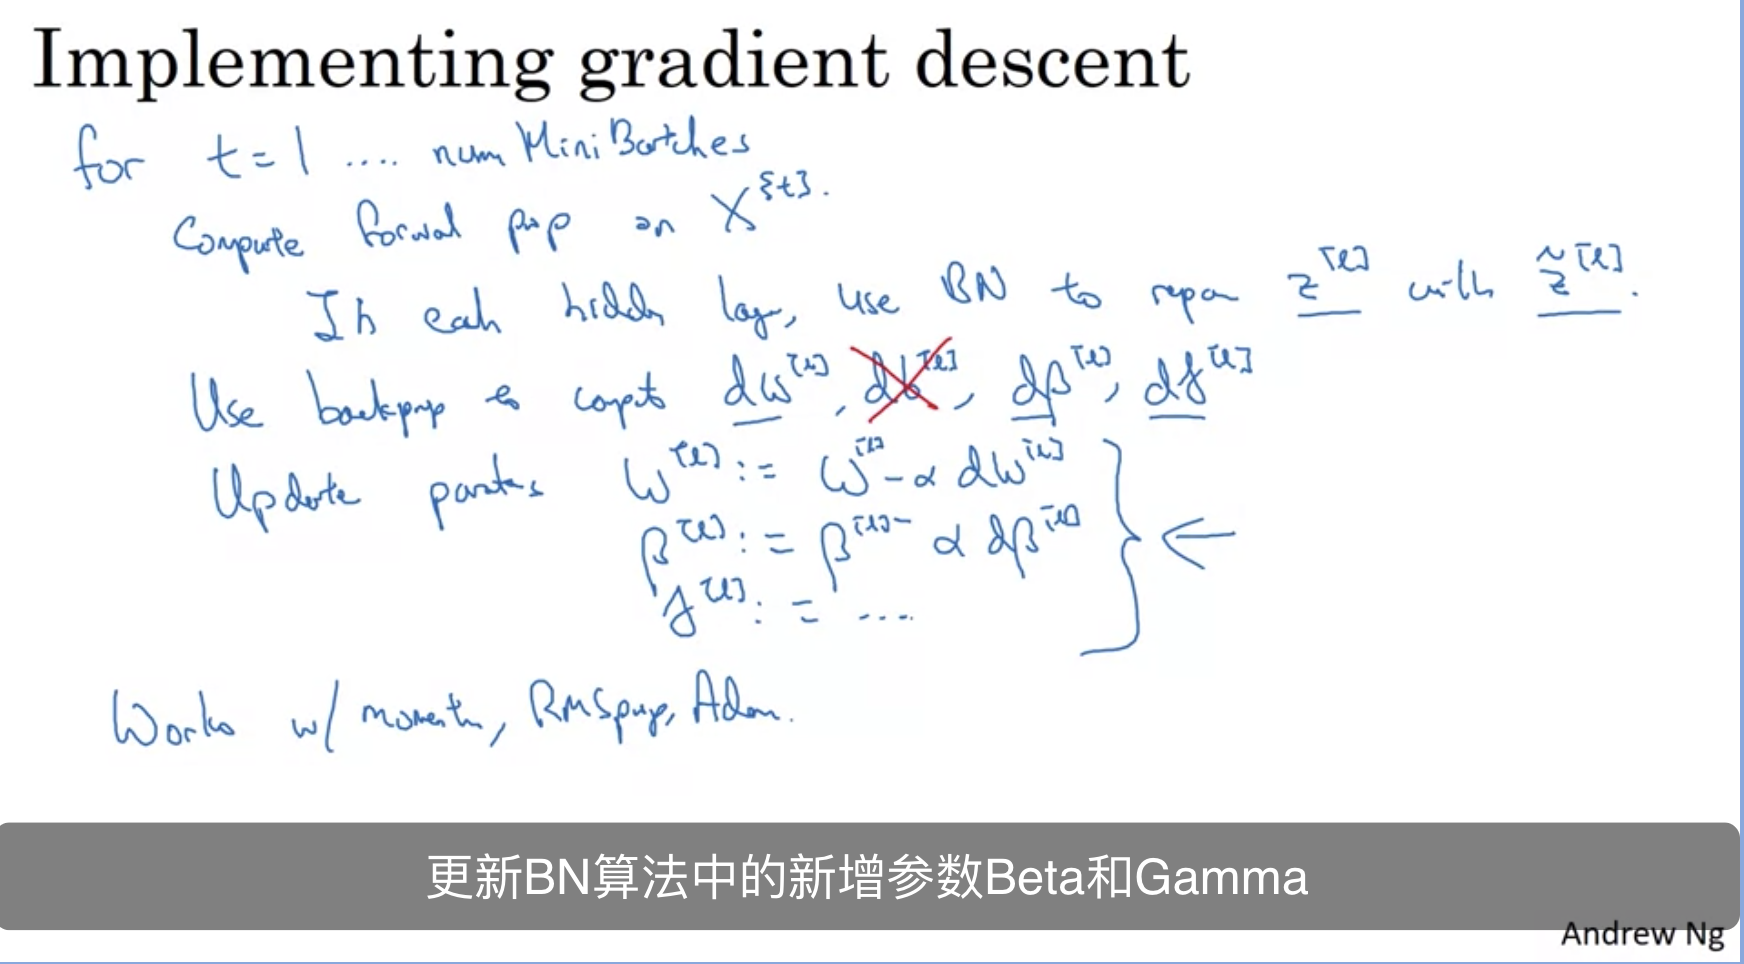 Implementing gradient descent
for t=1 .... num MiniBatches
Compute forwal prop on X^{t}.
In each hidden layer, use BN to repar z^[l] with z̃^[l].
Use backprop to compt dw^[l], db^[l], dβ^[l], dγ^[l]
Update partes W^[l] := W^[l] - α dw^[l]
β^[l] := β^[l] - α dβ^[l]
γ^[l] := ....
Works w/ moment, RMSprop, Adam.
更新BN算法中的新增参数Beta和Gamma
Andrew Ng